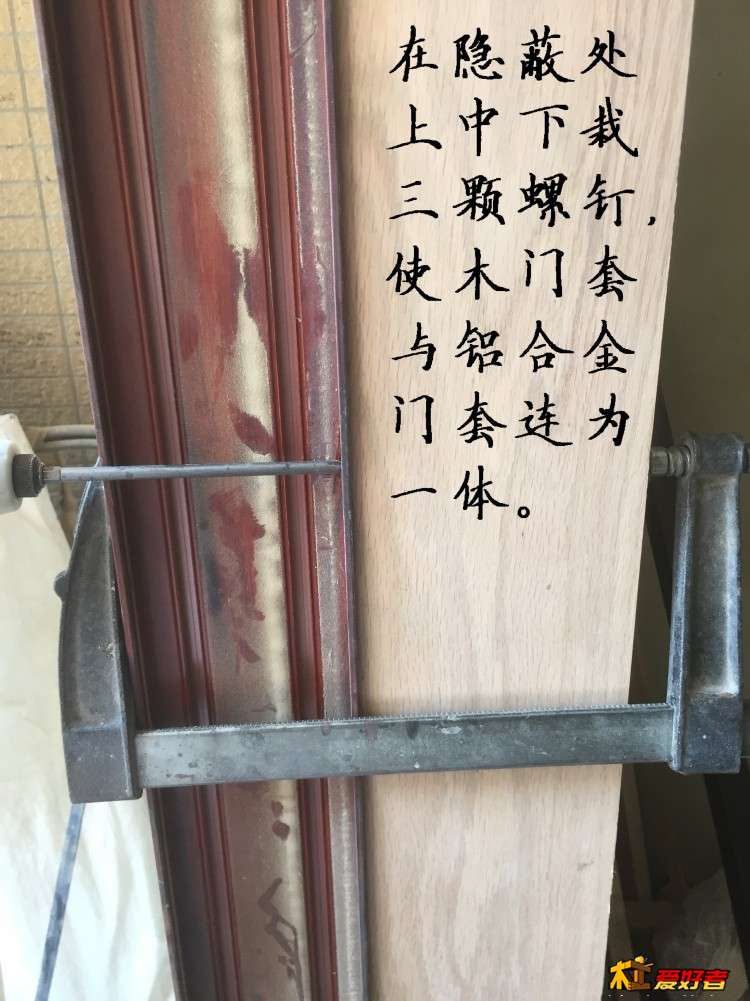 在隐蔽处
上中下栽
三颗螺钉,
使木门套
与铝合金
门套连为
一体。
木工爱好者